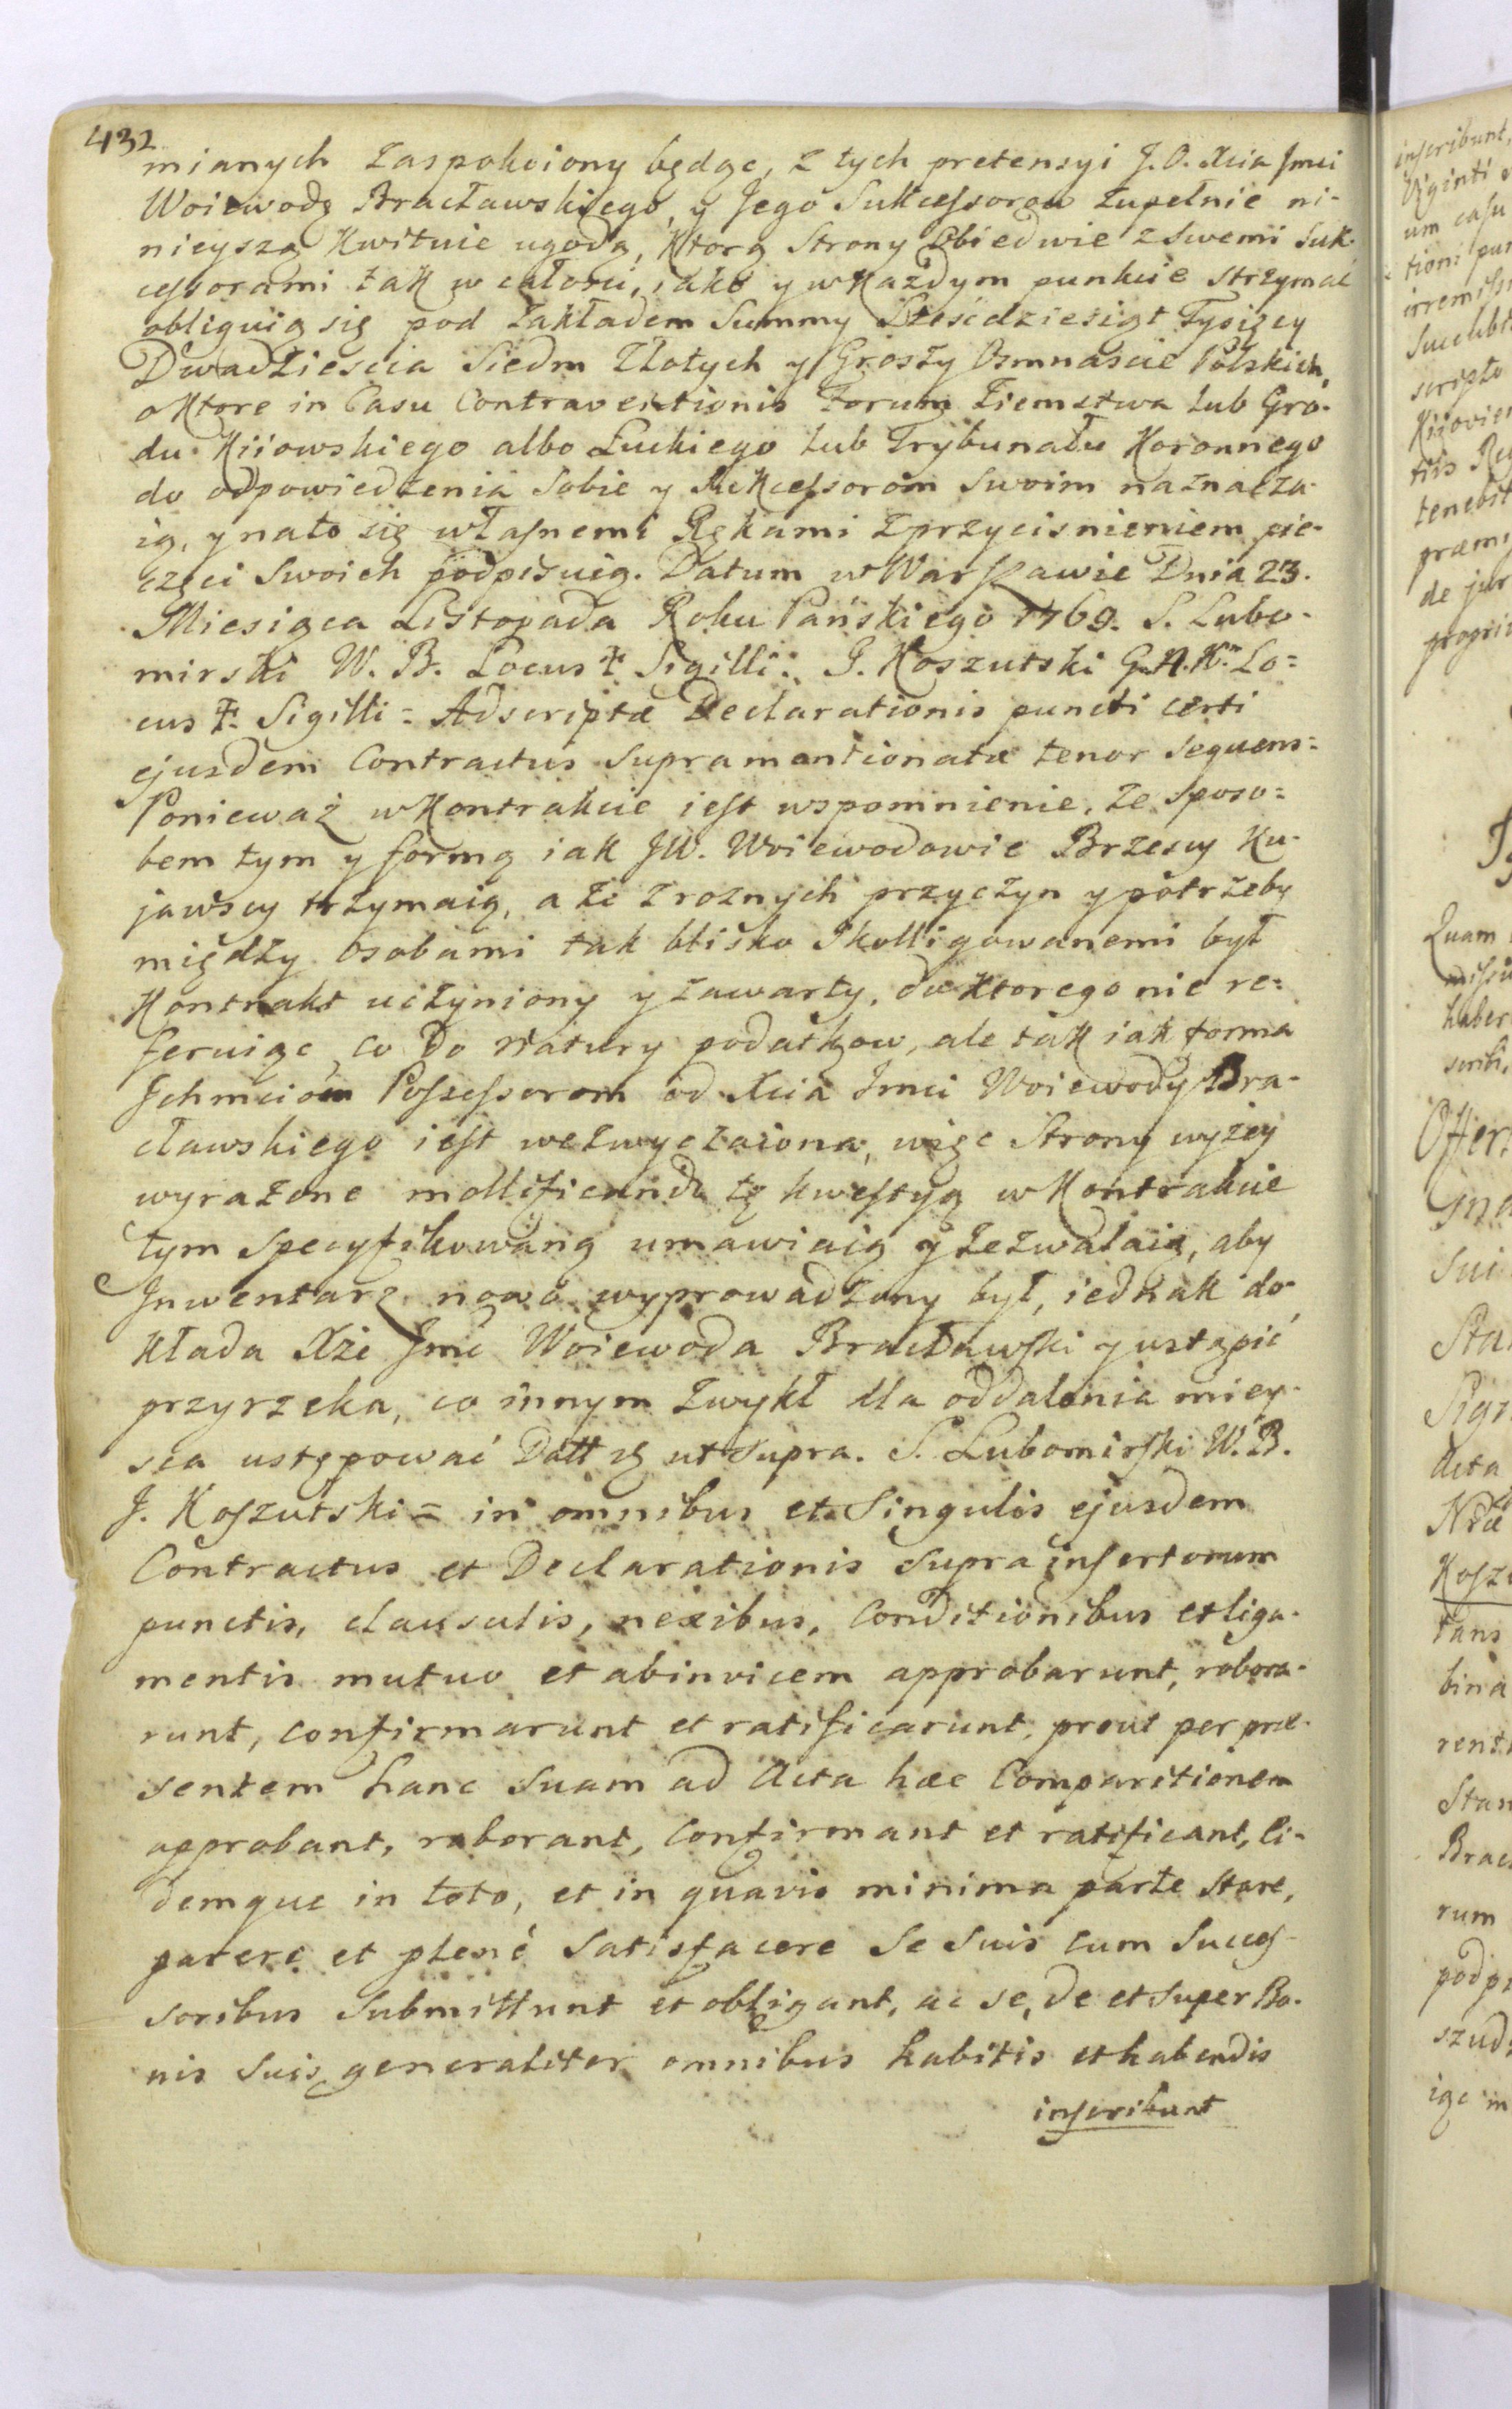 432
mianych zaspokoiony będąc, z tych pretensyi J. O. Xcia Jmci
Woiewodę Bracławskiego, y Jego Sukcessorow zupełnie ni-
nieyszą kwituie ugodą, ktorą Strony Obiedwie z swemi suk-
cessorami tak w całości, iako y w każdym punkcie strzymać
obliguią się pod zakładem Summy Sześćdziesiąt Tysięcy
Dwadzieścia Siedm Złotych y Groszy Osmnaście Polskich,
o ktore in Casu Contraventionis Forum Ziemstwa lub Gro-
du Kiiowskiego albo Łuckiego lub Trybunału Koronnego
do odpowiedzenia Sobie y Sukcessorom Swoim naznacza-
ią, y na to się własnemi Rękami z przycisnieniem pie-
częci Swoich podpisuią. Datum w Warszawie Dnia 23.
Miesiąca Listopada Roku Pańskiego 1769. S. Lubo-
mirski W. B. Locus Sigilli. J. Koszutski G. N. K. Lo=
cus Sigilli = Adscriptæ Declarationis puncti certi
ejusdem Contractus supramentionatæ tenor sequens=
Ponieważ w Kontrakcie iest wspomnienie, że sposo=
bem tym y formą iak JW. Woiewodowie Brzescy Ku-
jawscy trzymaią, a że z roznych przyczyn y potrzeby
między osobami tak blisko skolligowanemi był
Kontrakt uczyniony y zawarty, do ktorego nie re=
feruiąc co do Natury podatkow, ale tak iak forma
Jchmciom Possessorom od Xcia Jmci Woiewody Bra-
cławskiego iest wezwyczaiona, więc Strony wyżey
wyrażone mollificando tę kwestyą w Kontrakcie
tym specyfikowaną umawiaią y zezwalaią, aby
Jnwentarz nowo wyprowadzony był, iednak do
kłada Xże Jmć Woiewoda Bracławski y ustąpić
przyrzeka, co innym zwykł dla oddalenia miey-
sca ustępować Datt ut supra. S. Lubomirski W. B.
J. Koszutski = in omnibus et Singulis ejusdem
Contractus et Declarationis supra insertorum
punctis, clausulis, nexibus, Conditionibus et liga-
mentis mutuo et abinvicem approbarunt, robora-
runt, confirmarunt et ratificarunt, prout per præ-
sentem hanc suam ad Acta hæc Comparitionem
approbant, roborant, Confirmant et ratificant, Ii-
demque in toto, et in quavis minima parte stare,
parere et plené Satisfacere Se Suis cum Succes-
soribus Submittunt et obligant, ac se, de et super Bo-
nis Suis generaliter omnibus habitis et habendis
inscribunt
inscribunt,
Viginti
um casu
tioni
irremiss
Succub
scripto
Kiiovien
tenebit
præmi
de jur
proprii
Quam
haber
Offer
Sui
Sta
Acta
Kosz
tans
bina
rent
Stan
Brac
rum
podpi
szuds
iąc